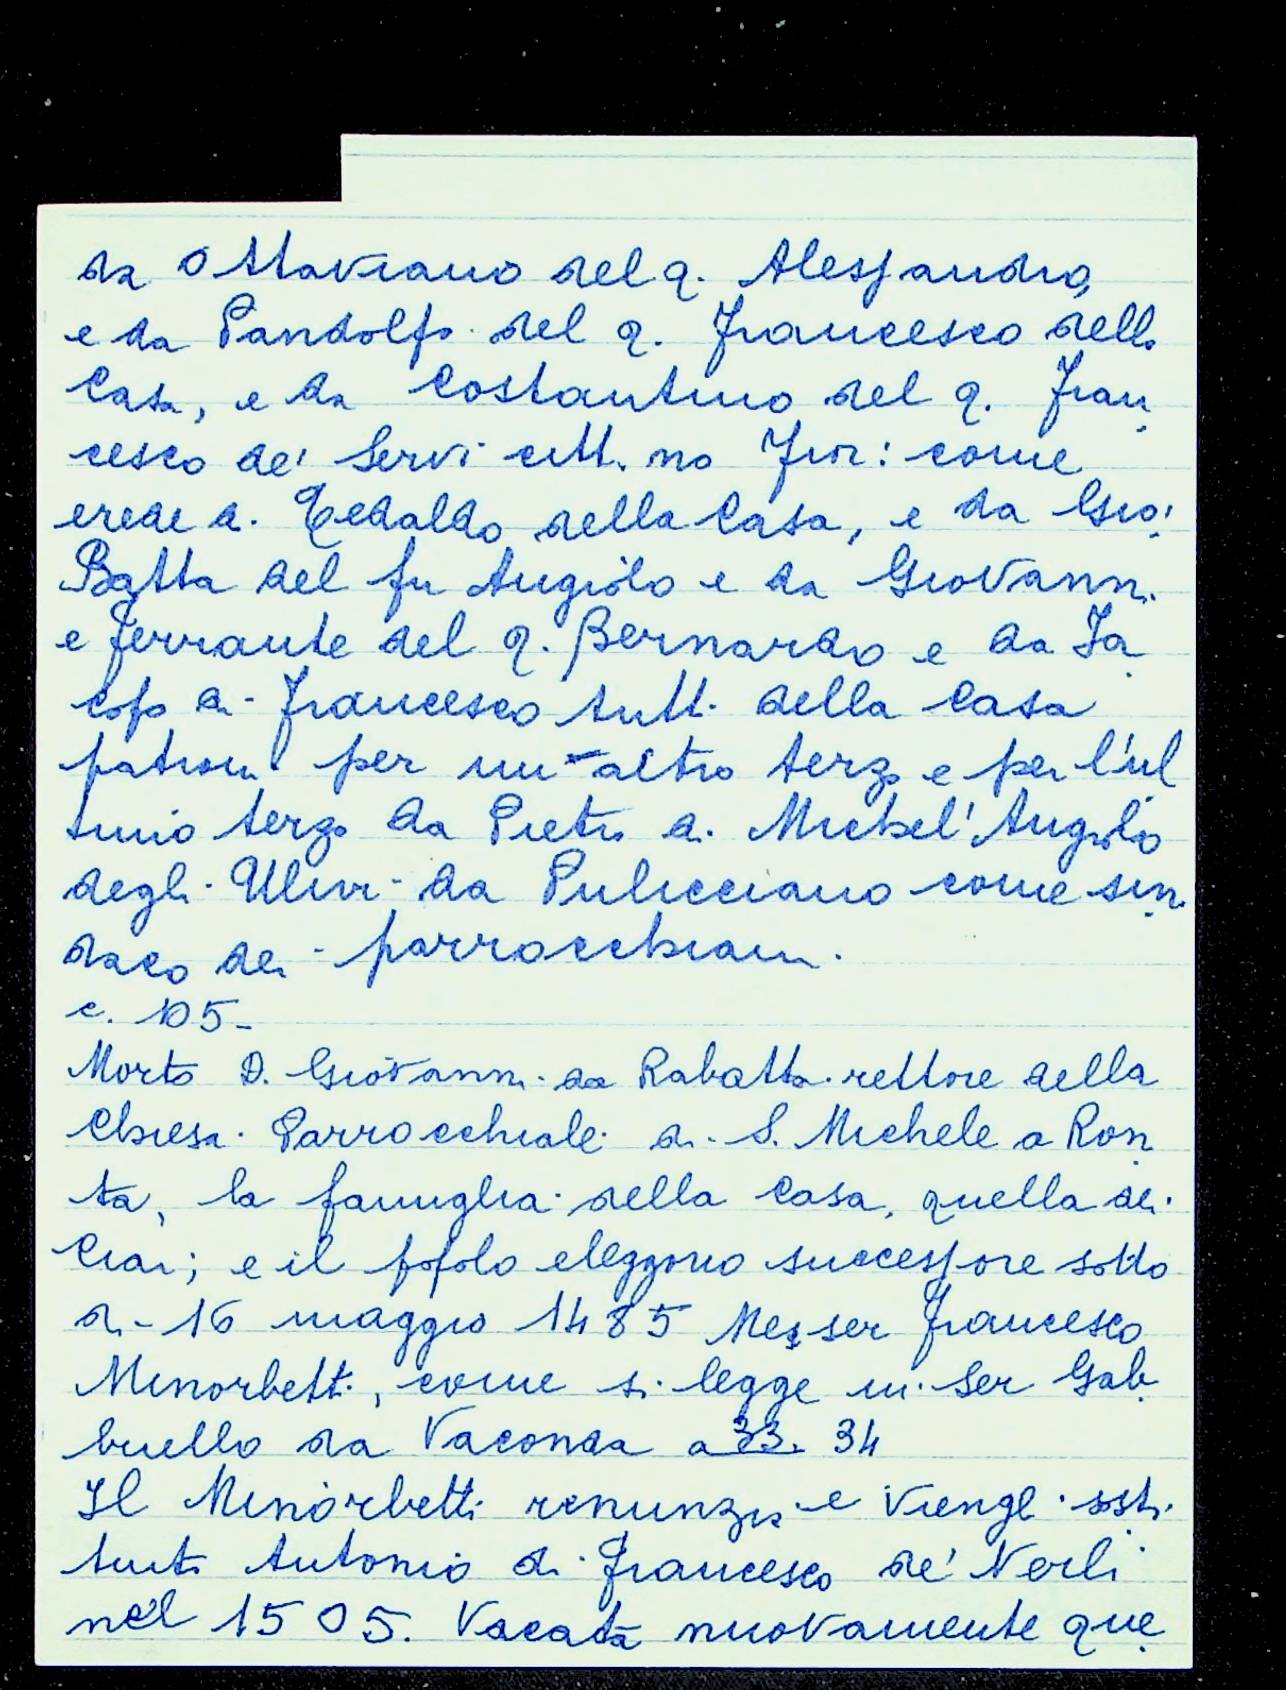 da Ottaviano del q. Alessandro,
e da Pandolfo del q. Francesco della
Casa, e da Costantino del q. Fran
cesco de' Servi citt. no Fior: come
erede di Tedaldo della Casa, e da Gio:
Batta del fu Angiolo e da Giovanni
e Ferrante del q. Bernardo e da Ja
copo di Francesco tutti della Casa
patroni per un altro terzo e per l'ul
timo terzo da Pietro di Michel'Angiolo
degli Ulivi da Pulicciano come sin
daco dei parrocchiani.
c. 105-
Morto D. Giovanni da Rabatta rettore della
Chiesa Parrocchiale di S. Michele a Ron
ta, la famiglia della Casa, quella dei
Ciai; e il popolo eleggono successore sotto
di 16 maggio 1485 Messer Francesco
Minorbetti, come si legge in Ser Gab
buello da Vaconda a 33. 34
Il Minorbetti renunzia e viene sosti
tuito Antonio di Francesco de' Nerli
nel 1505. Vacata nuovamente que